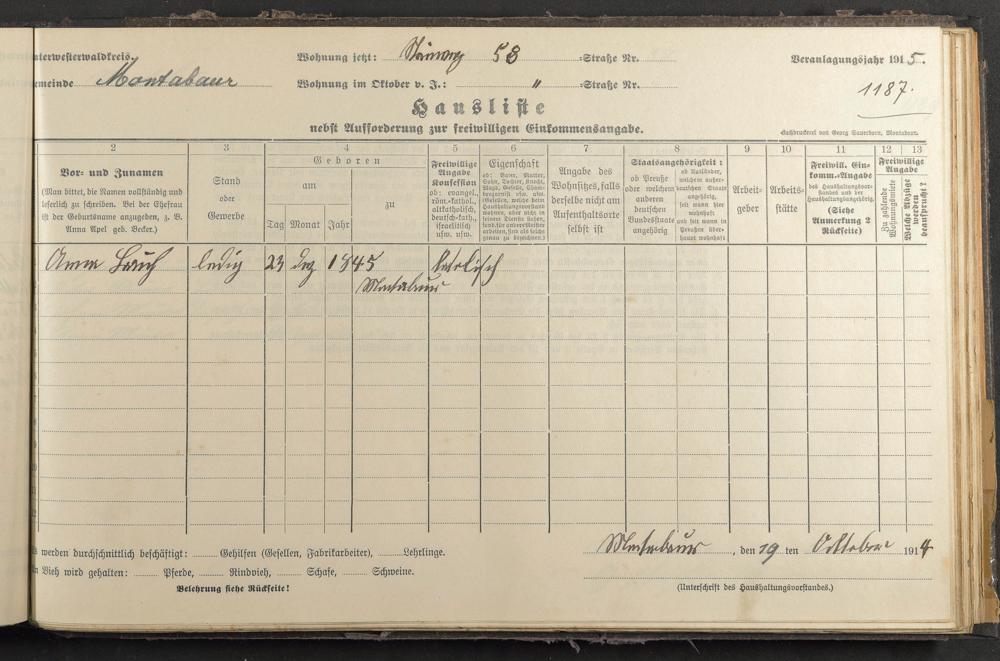 nterwesterwaldkreis. Wohnung jetzt: 58 =Straße Nr. Veranlagungsjahr 1915.
emeinde Montabaur Wohnung im Oktober v. J.: " =Straße Nr. 1187.
Hausliste
nebst Aufforderung zur freiwilligen Einkommensangabe.
Buchdruckerei von Georg Sauerborn, Montabaur.
2 3 4 5 6 7 8 9 10 11 12 13
Vor- und Zunamen
(Man bittet, die Namen vollständig und
leserlich zu schreiben. Bei der Ehefrau
ist der Geburtsname anzugeben, z. B.
Anna Apel geb. Becker.)
Stand
oder
Gewerbe
Geboren
am
Tag Monat Jahr
zu
Freiwillige
Angabe
Konfession
ob: evangel.,
röm.-kathol.,
altkatholisch,
deutsch-kath.,
israelitisch
usw. usw.
Eigenschaft
ob: Vater, Mutter,
Sohn, Tochter, Knecht,
Magd, Geselle,
Angabe des
Wohnsitzes, falls
derselbe nicht am
Aufenthaltsorte
selbst ist
Staatsangehörigkeit:
ob Preuße
oder welchem
anderen
deutschen
Bundesstaate
angehörig
ob Ausländer,
welchem außer-
deutschen Staate
angehörig,
seit wann hier
wohnhaft
und seit wann in
Preußen über-
haupt wohnhaft
Arbeit-
geber
Arbeits-
stätte
Freiwill. Ein-
komm.-Angabe
des Haushaltungsvor-
standes und der
Haushaltungsangehörig.
(Siehe
Anmerkung 2
Rückseite)
Freiwillige
Angabe
Zu zahlende
Wohnungsmiete
Welche Abzüge
werden
beansprucht?
Anna ledig 23 Dez 1845 katolisch
Montabaur
s werden durchschnittlich beschäftigt: Gehilfen (Gesellen, Fabrikarbeiter), Lehrlinge.
n Vieh wird gehalten: Pferde, Rindvieh, Schafe, Schweine.
Belehrung siehe Rückseite!
Montabaur, den 19 ten Oktober 1914
(Unterschrift des Haushaltungsvorstandes.)